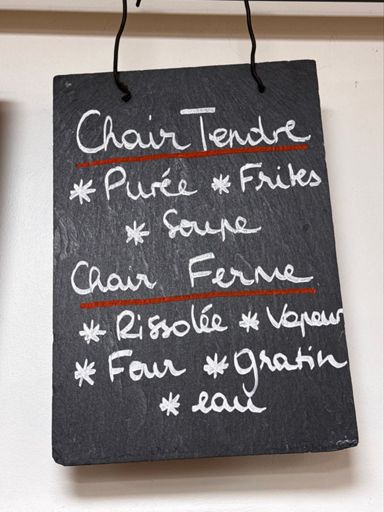 Chair Tendre
* Purée * Frites
* Soupe
Chair Ferme
* Rissolée * Vapeur
* Four * gratin
* eau